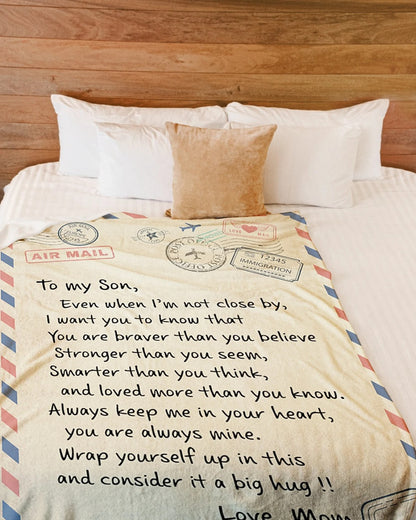 12345
IMMIGRATION
AIR MAIL
To my Son,
Even when I'm not close by,
I want you to know that
You are braver than you believe
Stronger than you seem,
Smarter than you think,
and loved more than you know.
Always keep me in your heart,
you are always mine.
Wrap yourself up in this
and consider it a big hug !!
Love, Mom